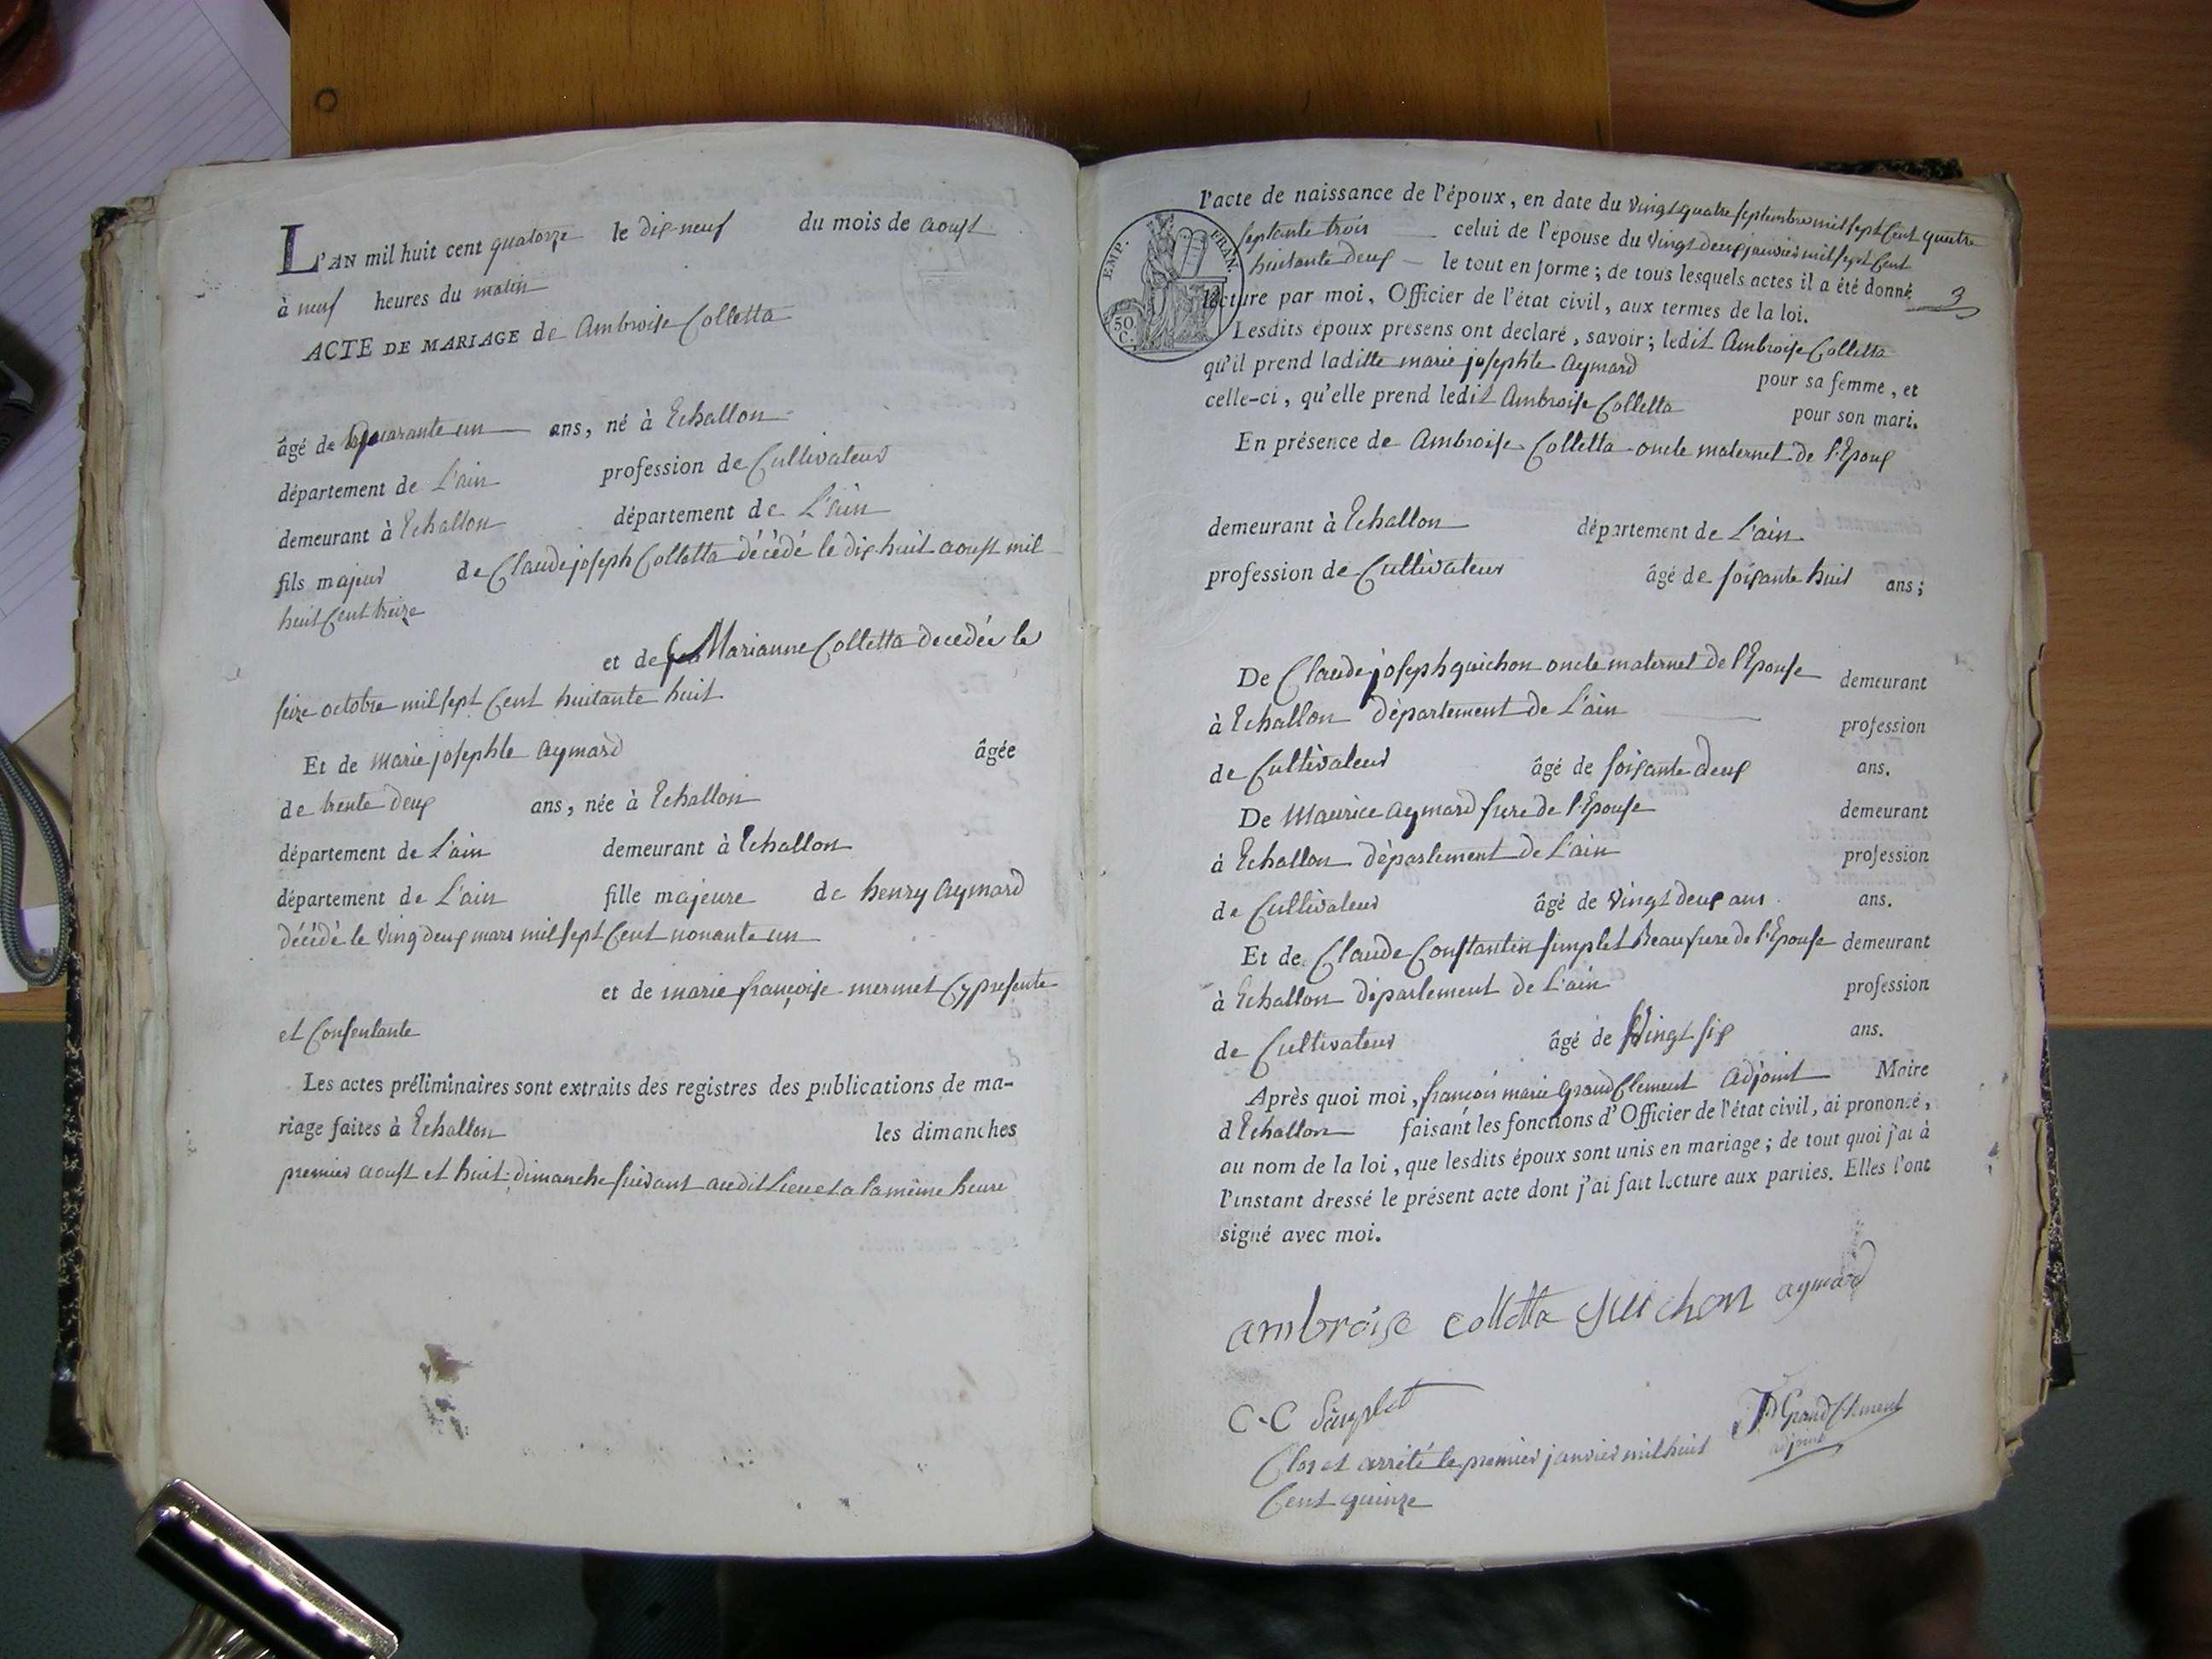 L'AN mil huit cent quatorze le dix-neuf du mois de aoust
à neuf heures du matin
ACTE DE MARIAGE de Ambroise Colletta
âgé de quarante un ans, né à Echallon
département de L'ain profession de Cultivateur
demeurant à Echallon département de L'ain
fils majeur de Claude joseph Colletta décédé le dix huit aoust mil
huit Cent treize
et de Marianne Colletta decedée le
seize octobre mil sept Cent huitante huit
Et de marie josephte aymard âgée
de trente deux ans, née à Echallon
département de L'ain demeurant à Echallon
département de L'ain fille majeure de henry aymard
décédé le ving deux mars mil sept Cent nonante un
et de marie françoise mermet Cy presente
et Consentante
Les actes préliminaires sont extraits des registres des publications de ma-
riage faites à Echallon les dimanches
premier aoust et huit dimanche suivant audit Lieu et a la même heure
l'acte de naissance de l'époux, en date du vingt quatre septembre mil sept Cent quatre
septante trois celui de l'épouse du vingt deux janvier mil sept Cent
huitante deux le tout en forme; de tous lesquels actes il a été donné
3
EMP. FRAN.
50 C.
lecture par moi, Officier de l'état civil, aux termes de la loi.
Lesdits époux présens ont déclaré, savoir; ledit Ambroise Colletta
qu'il prend laditte marie josephte aymard pour sa femme, et
celle-ci, qu'elle prend ledit Ambroise Colletta pour son mari.
En présence de Ambroise Colletta oncle maternel de l'Epoux
demeurant à Echallon département de L'ain
profession de Cultivateur âgé de soixante huit ans;
De Claude joseph guichon oncle maternel de l'Epouse demeurant
à Echallon département de L'ain profession
de Cultivateur âgé de soixante deux ans.
De Maurice aymard frere de l'Epouse demeurant
à Echallon département de L'ain profession
de Cultivateur âgé de vingt deux ans ans.
Et de Claude Constantin simplet Beau frere de l'Epouse demeurant
à Echallon département de L'ain profession
de Cultivateur âgé de Vingt six ans.
Après quoi moi, françois marie GrandClement adjoint Maire
d Echallon faisant les fonctions d'Officier de l'état civil, ai prononcé,
au nom de la loi, que lesdits époux sont unis en mariage; de tout quoi j'ai à
l'instant dressé le présent acte dont j'ai fait lecture aux parties. Elles l'ont
signé avec moi.
ambroise colletta guichon aymard
C-C Simplet
GrandClement
adjoint
Clos et arrété le premier janvier mil huit
Cent quinze